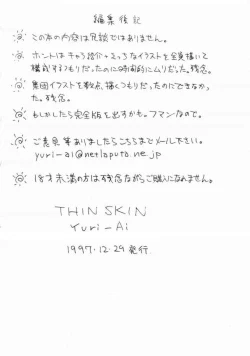 編集後記
この本の内容は冗談ではありません。
ホントは キャラ紹介+えっちなイラストを全員描いて
構成するつもりだったのに時間的にムリだった。残念。
集団イラストを数点、描くつもりだったのにできなかっ
た。残念。
もしかしたら完全版を出すかも。フマンなので。
ご意見等ありましたらこちらまでメール下さい。
yuri-ai@netlaputa.ne.jp
18才未満の方は残念ながらご購入になれません。
THIN SKIN
Yuri-Ai
1997.12.29 発行